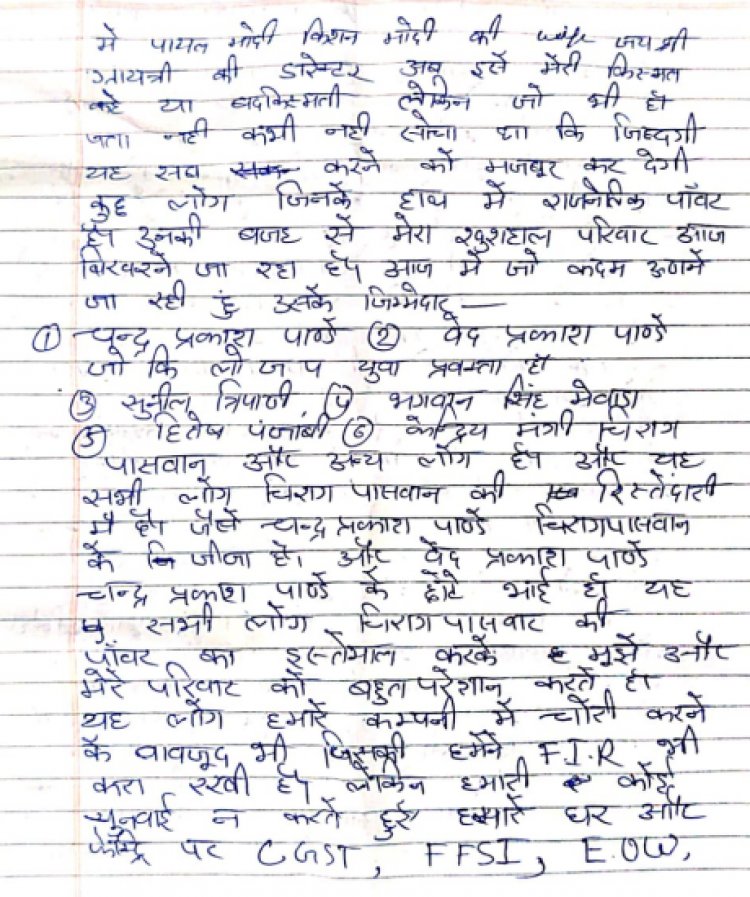 मे पायल मोदी किशन मोदी की wife जय श्री
गायत्री की डारेक्टर अब इसे मेरी किस्मत
कहे या बदकिस्मती लेकिन जो भी हो
पता नही कभी नही सोचा था कि जिन्दगी
यह सब करने को मजबूर कर देगी
कुछ लोग जिनके हाथ में राजनेतिक पॉवर
है। उनकी बजह से मेरा खुशहाल परिवार आज
बिखरने जा रहा है। आज में जो कदम उठाने
जा रही हुं उसके जिम्मेदार —
① चन्द्र प्रकाश पाण्डे ② वेद प्रकाश पाण्डे
जो कि लो ज प युवा प्रवक्ता है।
③ सुनील त्रिपाठी, ④ भगवान सिंह मेवाडा
⑤ हितेष पंजाबी ⑥ केन्द्रिय मंत्री चिराग
पासवान और अन्य लोग है। और यह
सभी लोग चिराग पासवान की रिस्तेदारी
मै है। जैसे चन्द्र प्रकाश पाण्डे चिराग पासवान
के जीजा है। और वेद प्रकाश पाण्डे
चन्द्र प्रकाश पाण्डे के छोटे भाई है। यह
सभी लोग चिराग पासवाट की
पॉवर का इस्तेमाल करके मुझे और
मेरे परिवार को बहुत परेशान करते है।
यह लोग हमारे कम्पनी में चोरी करने
के वावजूद भी जिसकी हमने F.I.R भी
करा रखी है। लेकिन हमारी कोई
सुनवाई न करते हुई हमारे घर और
पर CGST, FFSI, E.O.W,